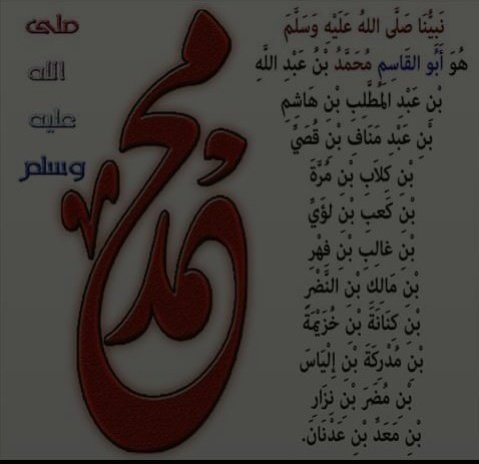 نَبِيُّنَا صَلَّى اللهُ عَلَيْهِ وَسَلَّمَ
هُوَ أَبُو القَاسِمِ مُحَمَّدُ بْنُ عَبْدِ اللَّهِ
بْنِ عَبْدِ المُطَّلِبِ بْنِ هَاشِمِ
بْنِ عَبْدِ مَنَافِ بْنِ قُصَيِّ
بْنِ كِلَابِ بْنِ مُرَّةَ
بْنِ كَعبِ بْنِ لؤَيِّ
بْنِ غالِبِ بْنِ فِهْرِ
بْنِ مَالِكِ بْنِ النَّضْرِ
بْنِ كِنَانَةَ بْنِ خُزَيْمَةَ
بْنِ مُدْرِكَةَ بْنِ إِلْيَاسَ
بْنِ مُضَرَ بْنِ نِزَارِ
بْنِ مَعَدِّ بْنِ عَدْنَانَ.
محمد
صلى
الله
عليه
وسلم